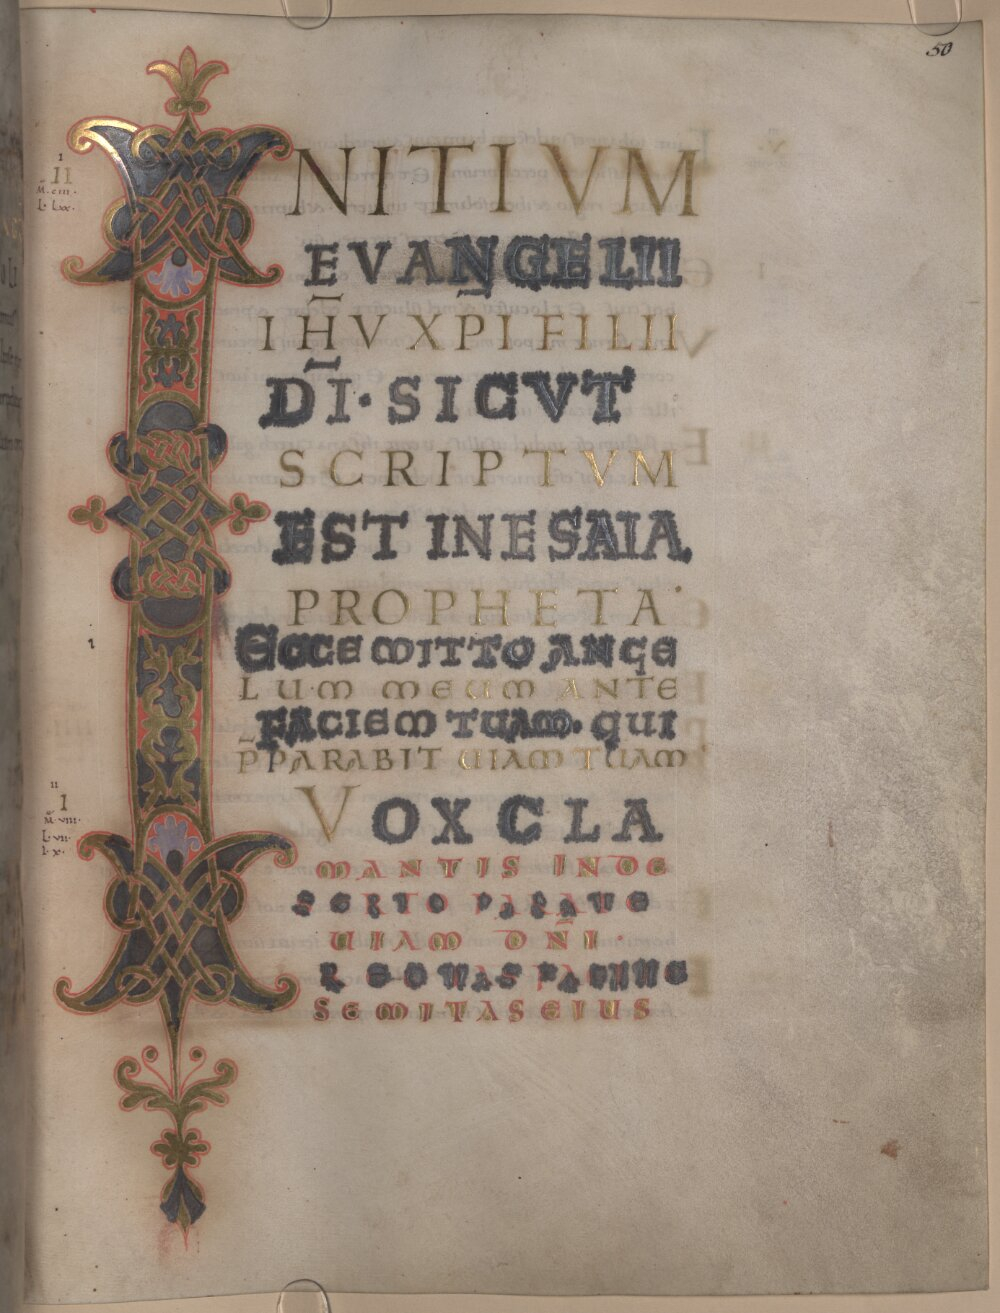 50
INITIVM
EVANGELII
IH̅V XPI FILII
D̅I · SICVT
SCRIPTVM
EST IN ESAIA
PROPHETA ·
ECCE MITTO ANGE
LUM MEUM ANTE
FACIEM TUAM · QUI
P̅PARABIT UIAM TUAM
VOX CLA
MANTIS IN DE
SERTO PARATE
UIAM DN̅I ·
RECTAS FACITE
SEMITAS EIUS
I
II
M · CIII ·
L · LXX ·
1
II
I
M · VIII ·
L · VII ·
I · X ·